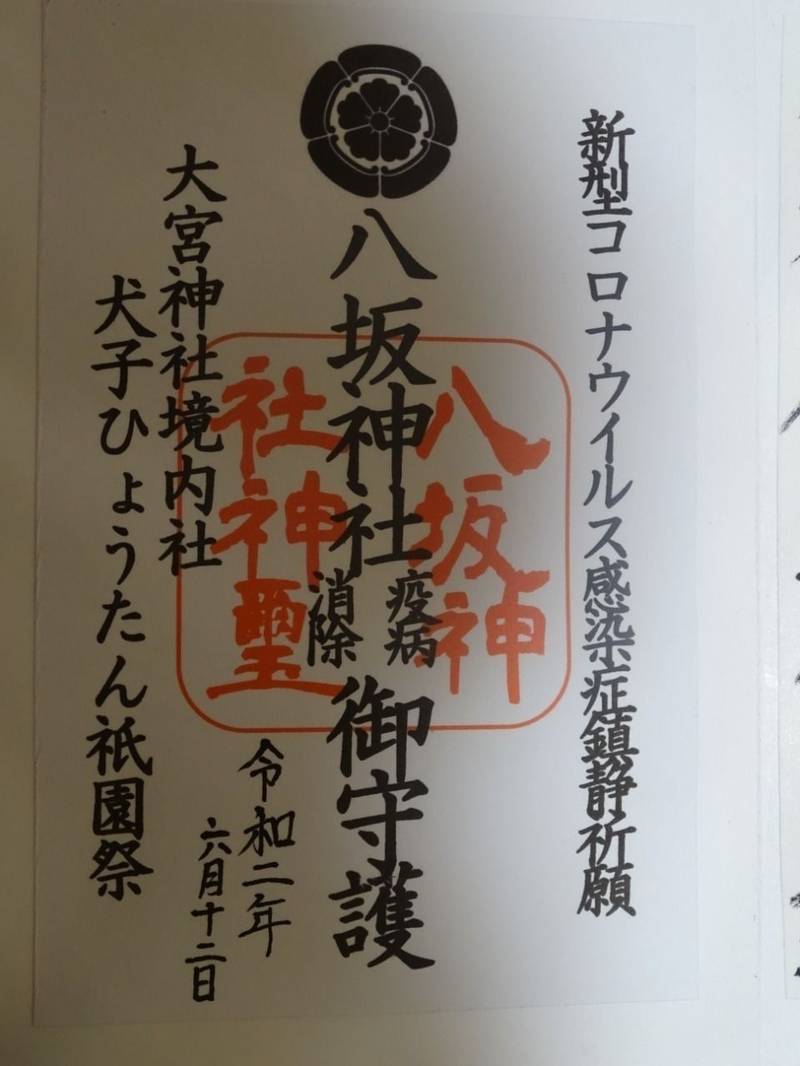 新型コロナウイルス感染症鎮静祈願
八坂神社
疫病
消除
御守護
八坂神
社神璽
大宮神社境内社
犬子ひょうたん祇園祭
令和二年
六月十二日